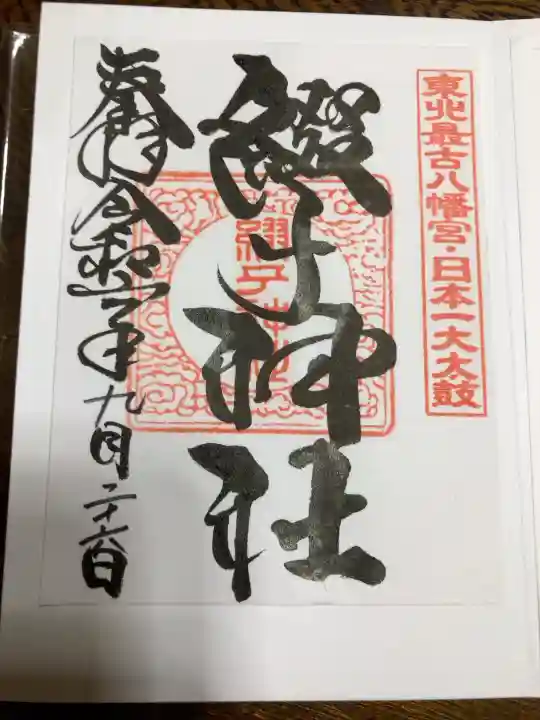 東北最古八幡宮・日本一大太鼓
綴子神社
綴子神社
奉拝 令和 年九月二十六日